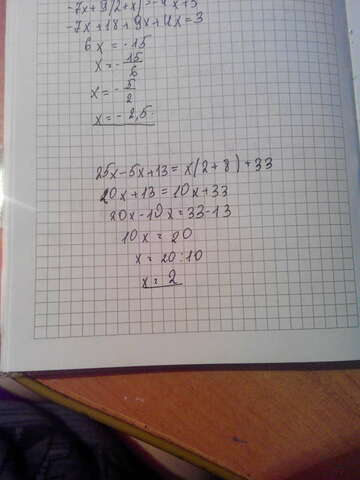 -7x+9(2+x)=-4x+3
-7x+18+9x+4x=3
6x=-15
x=-15/6
x=-5/2
x=-2,5
25x-5x+13=x(2+8)+33
20x+13=10x+33
20x-10x=33-13
10x=20
x=20:10
x=2